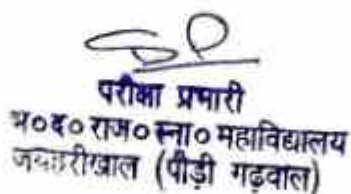 परीक्षा प्रभारी
भ०द०राज०स्ना० महाविद्यालय
जयहरीखाल (पौड़ी गढ़वाल)